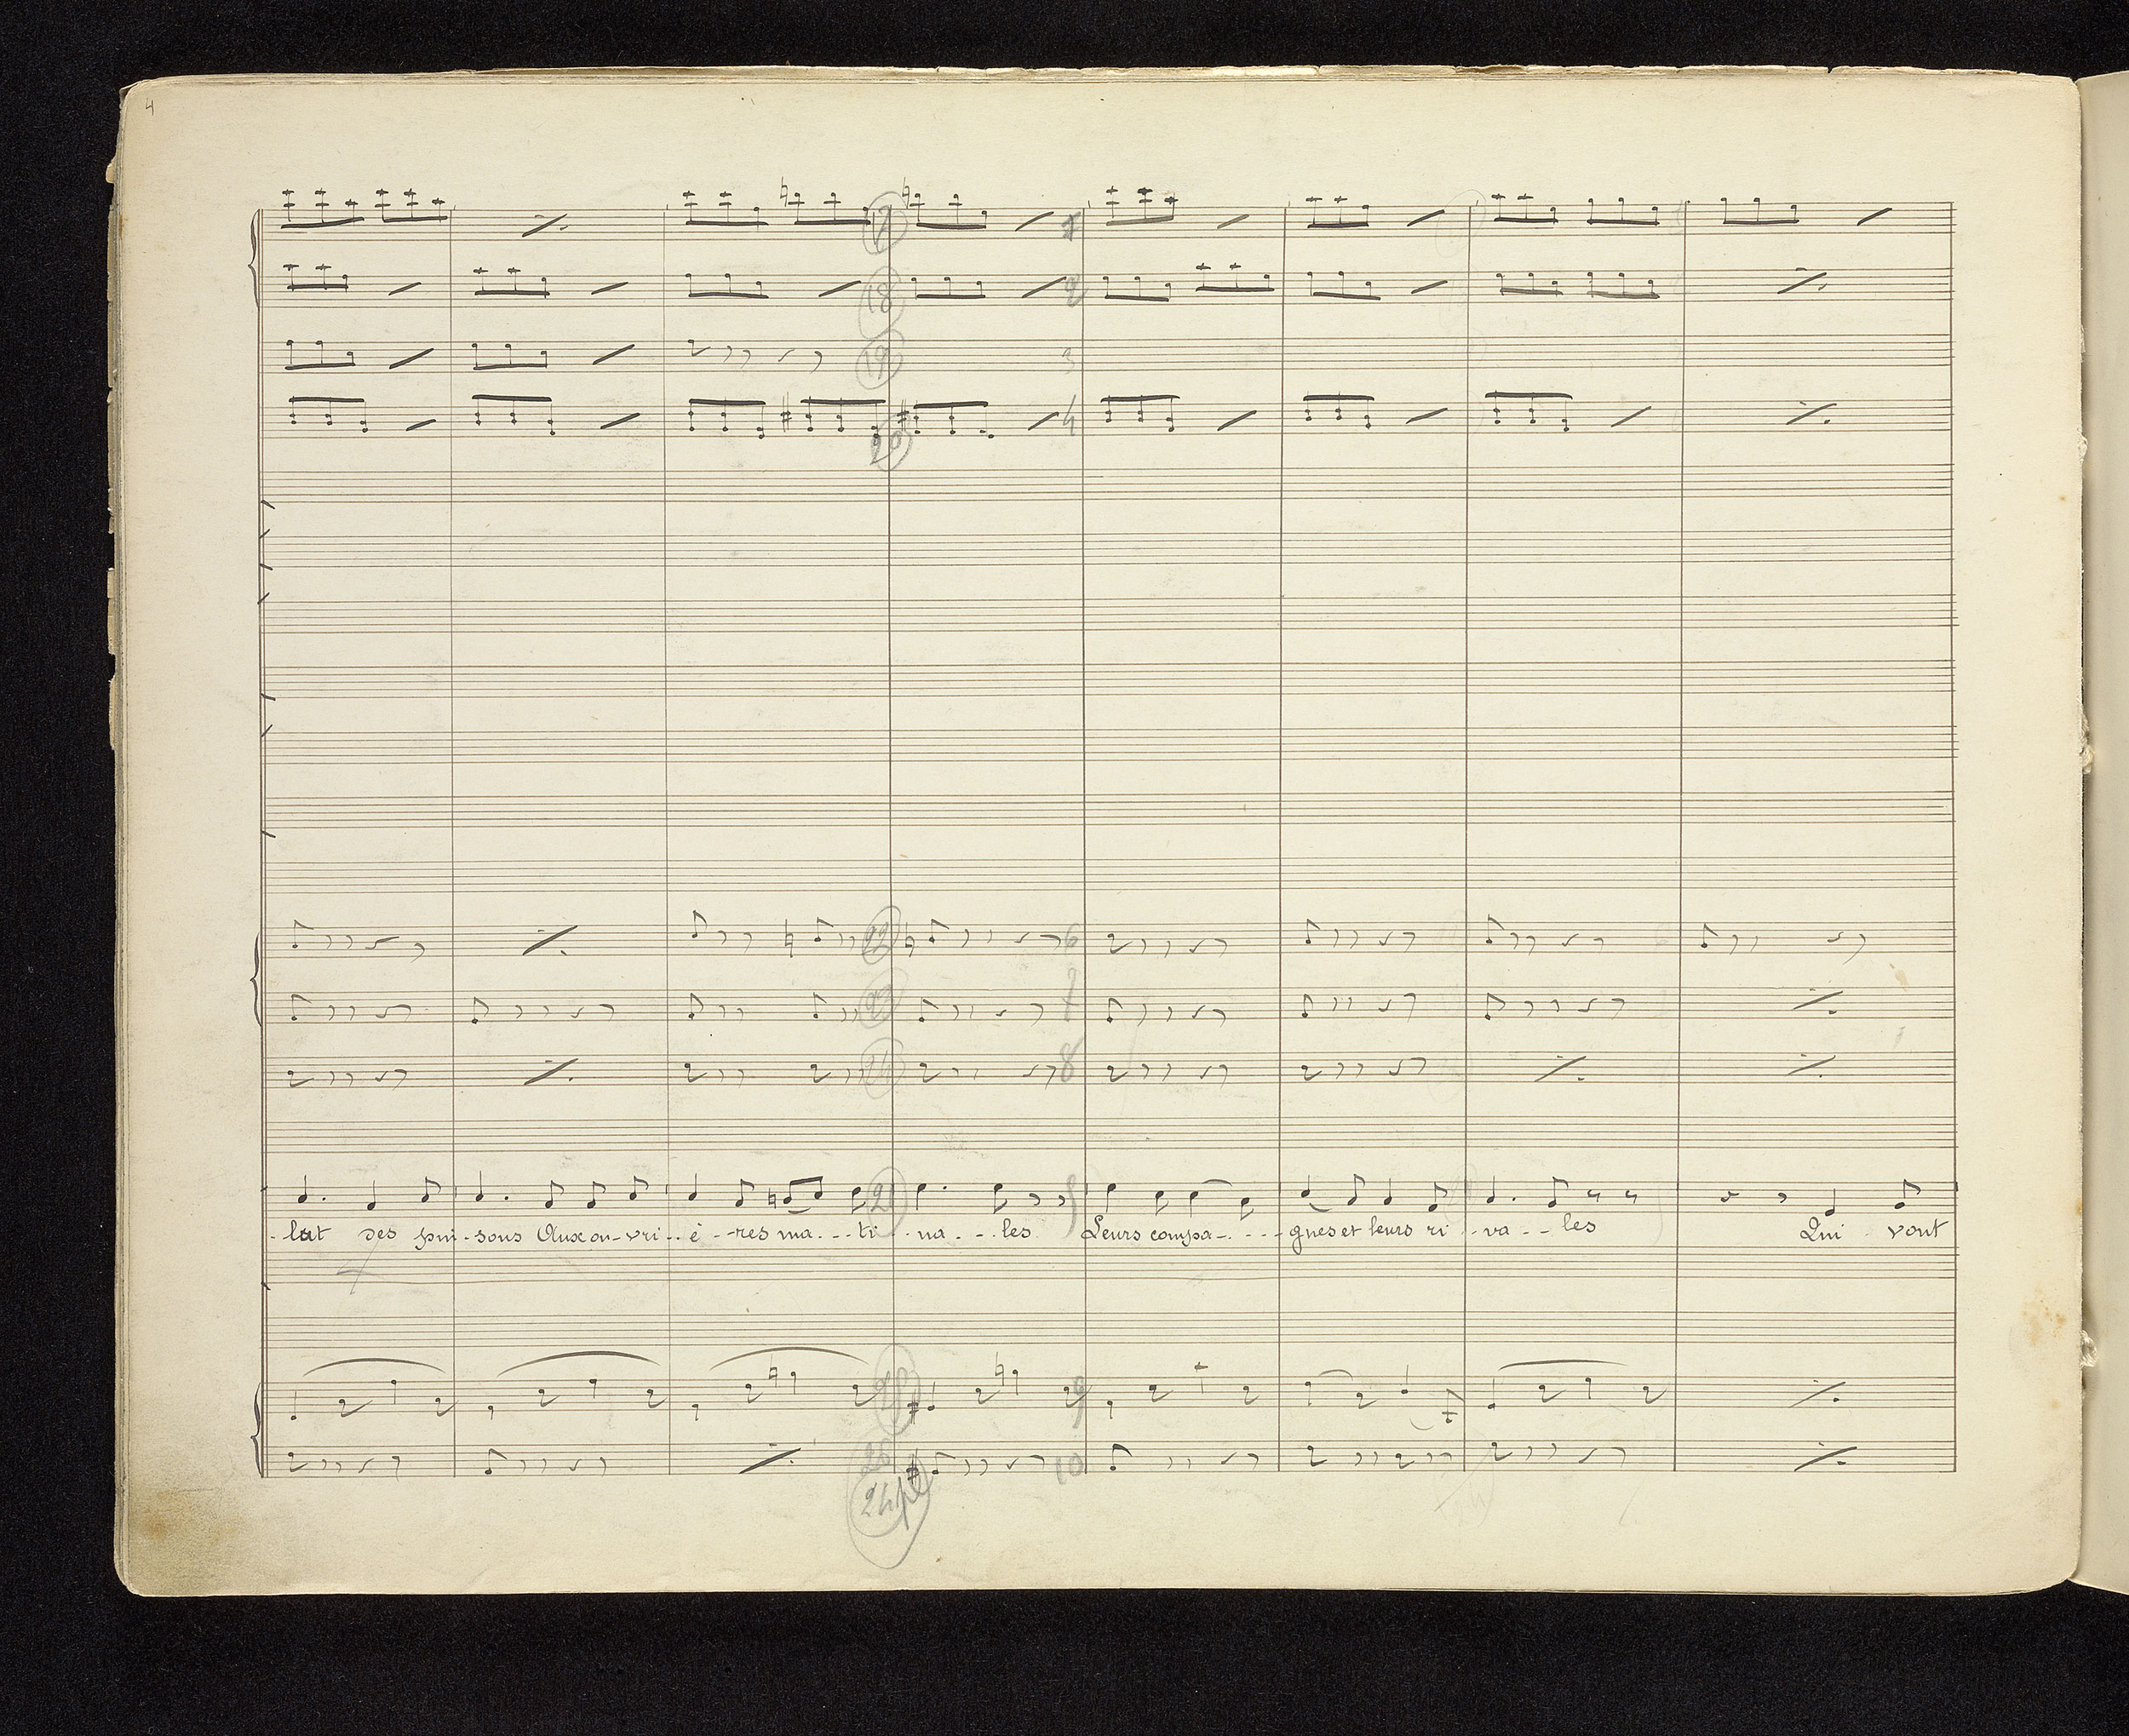 4
17
18 2
19 3
20 4
22 6
23 7
24 8
21 5
-lut des pin-sons Aux ou-vri-è-res ma-ti-na-les Leurs compa-gnes et leurs ri-va-les Qui vont
25 9
26 10